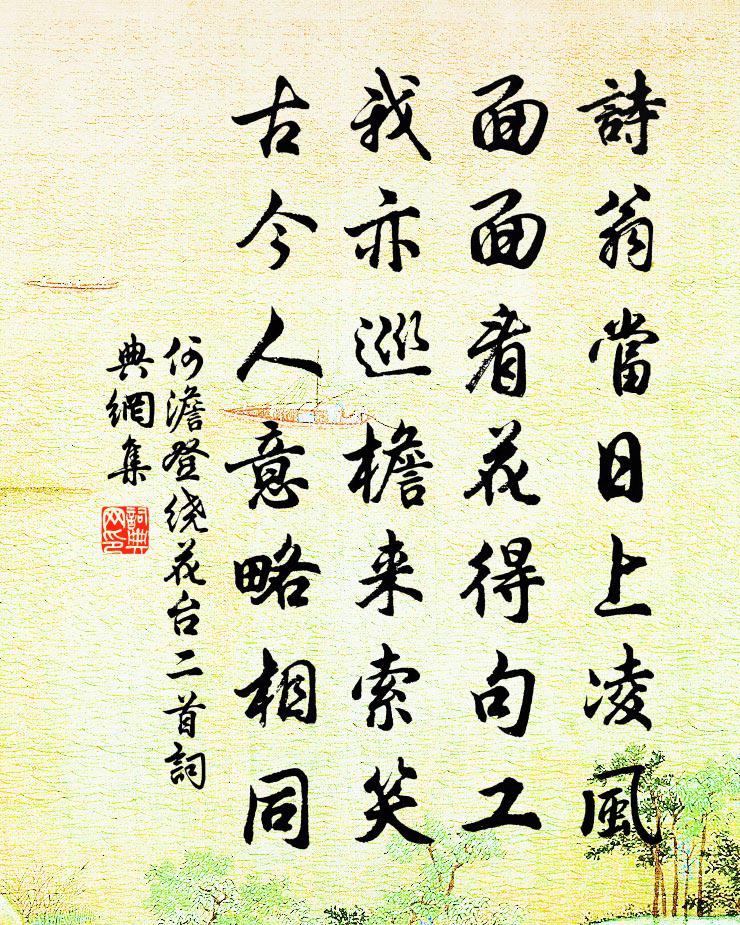 詩翁當日上凌風
面面看花得句工
我亦巡檐来索笑
古今人意略相同
何澹登绕花台二首詞
典網集
詞典
网印